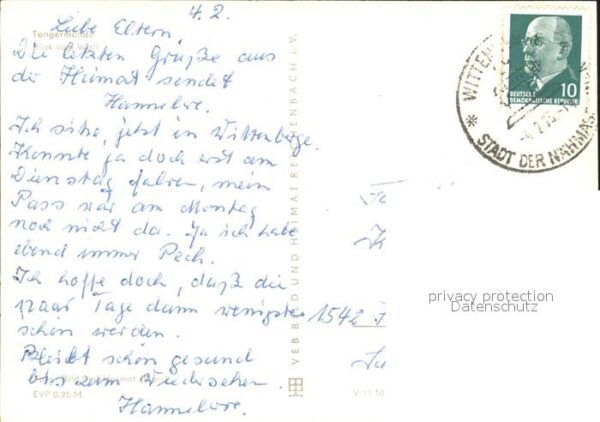 4.2.
Liebe Eltern
Tangermünde
Blick vom
Die letzten Grüße aus
der Heimat sendet
Hannelore.
Ich sitze jetzt in Wittenberge.
Konnte ja doch erst am
Dienstag fahren, mein
Pass war am Montag
noch nicht da. Ja ich habe
ebend immer Pech.
Ich hoffe doch, daß die
paar Tage dann wenigstens
schön werden.
Bleibt schön gesund
bis zum Wiedersehen.
Hannelore.
EVP 0,25 M
VEB BILD UND HEIMAT REICHENBACH I.V.
V 11 50
1542
privacy protection
Datenschutz
10
DEUTSCHE
DEMOKRATISCHE REPUBLIK
WITTEN
STADT DER NÄHMAS